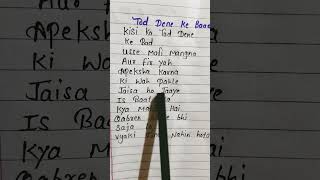 Tod Dene Ke Baad
Kisi ko Tod Dene
Ke Bad
Usse Mafi Mangna
Aur Fir yah
Apeksha Karna
Ki Wah Pahle
Jaisa ho Jaaye
Is Baat
Kya Ma Hai
Qabren bhi
Saja
Vyakti Nahin hota